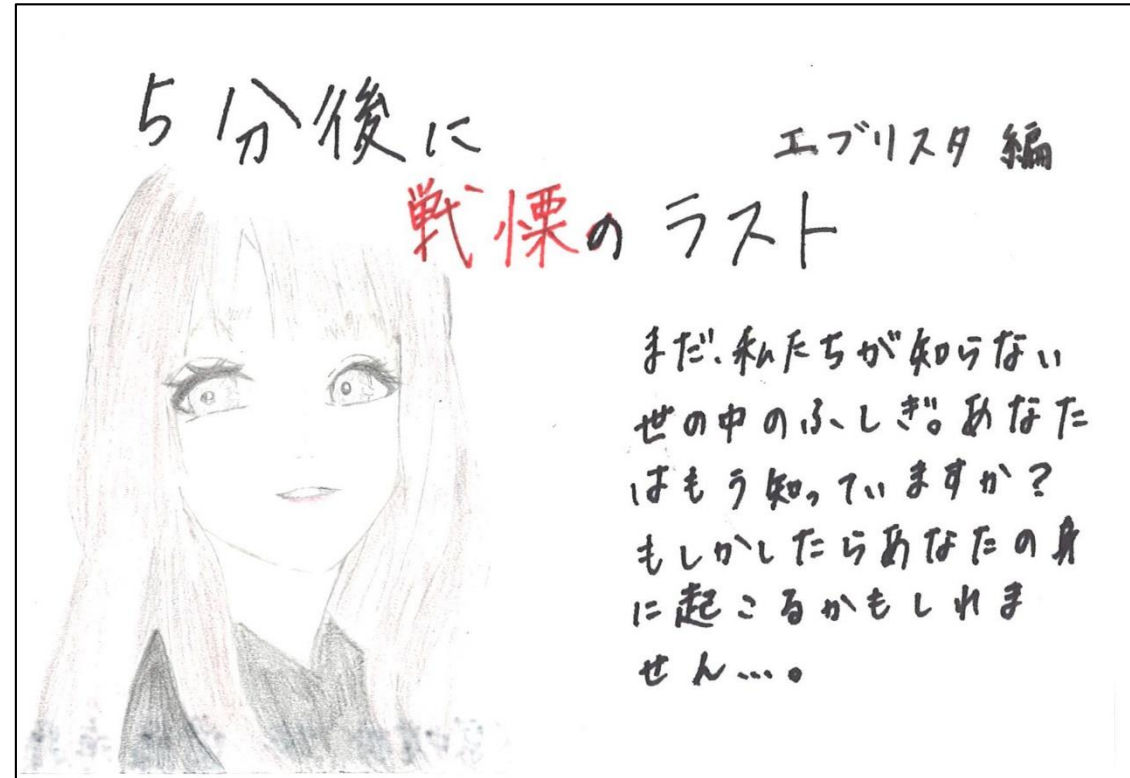 5分後に
戦慄のラスト
エブリスタ 編
まだ、私たちが知らない
世の中のふしぎ。あなた
はもう知っていますか？
もしかしたらあなたの身
に起こるかもしれま
せん…。